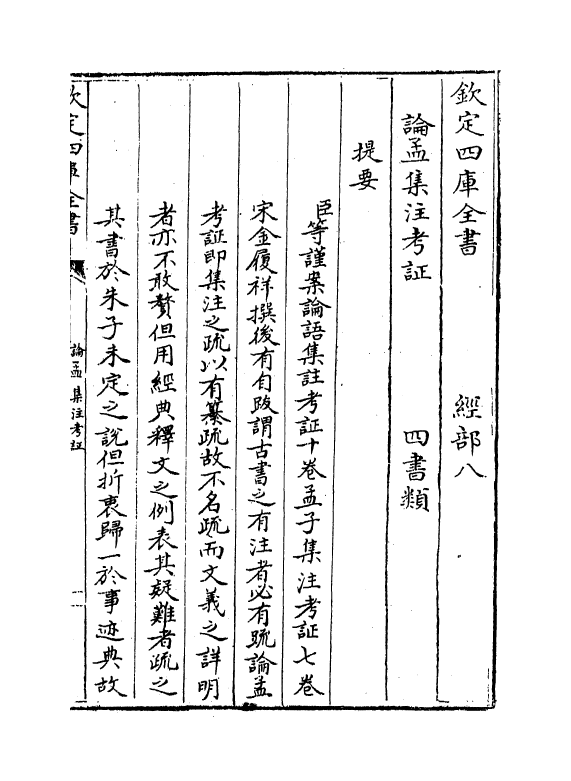 欽定四庫全書　經部八
論孟集注考証　四書類
提要
臣等謹案論語集註考証十卷孟子集注考証七卷
宋金履祥撰後有自跋謂古書之有注者必有疏論孟
考証即集注之疏以有纂疏故不名疏而文義之詳明
者亦不敢贅但用經典釋文之例表其疑難者疏之
其書於朱子未定之說但折衷歸一於事迹典故
欽定四庫全書　論孟集注考証